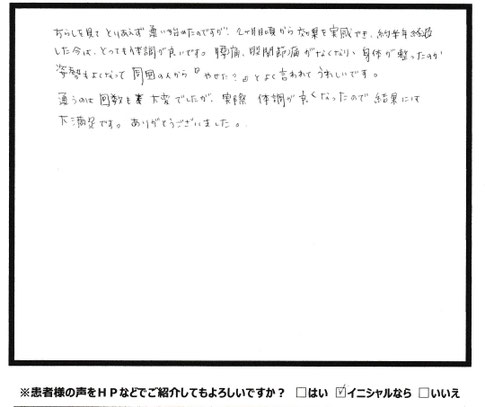 ちらしを見て とりあえず 通い始めたのですが、2ヶ月目頃から 効果を実感でき、約半年経過
した今は、とっても体調が良いです。腰痛、股関節痛がなくなり、身体が整ったのか
姿勢もよくなって 周囲の人から『やせた？』とよく言われて うれしいです。
通うのは 回数も 大変でしたが、実際 体調が良くなったので 結果には
大満足です。ありがとうございました。
※患者様の声をHPなどでご紹介してもよろしいですか？ □はい ☑イニシャルなら □いいえ